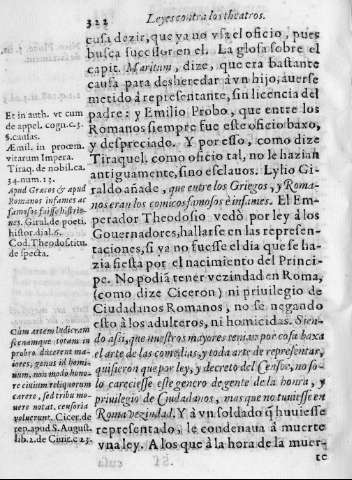 322 Leyes contra los theatros.
cusa dezir, que ya no vsa el oficio, pues
busca sucessor en el. La glosa sobre el
capit. Maritum, dize, que era bastante
causa para desheredar à vn hijo, auerse
metido à representante, sin licencia del
padre: y Emilio Probo, que entre los
Romanos siempre fue este oficio baxo,
y despreciado. Y por esso, como dize
Tiraquel, como oficio tal, no le hazian
antiguamente, sino esclauos. Lylio Gi-
raldo añade, que entre los Griegos, y Roma-
nos eran los comicos famosos è infames. El Em-
perador Theodosio vedò por ley à los
Gouernadores, hallarse en las represen-
taciones, si ya no fuesse el dia que se ha-
zia fiesta por el nacimiento del Princi-
pe. No podiã tener vezindad en Roma,
(como dize Ciceron) ni priuilegio de
Ciudadanos Romanos, no se negando
esto à los adulteros, ni homicidas. Sien-
do assi, que nuestros mayores tenian por cosa baxa
el arte de las comedias, y toda arte de representar,
quisieron que por ley, y decreto del Censor, no so-
lo careciesse este genero de gente de la honra, y
priuilegio de Ciudadanos, mas que no tuuiesse en
Roma vezindad. Y à vn soldado q̃ huuiesse
representado, le condenaua à muerte
vna ley. A los que à la hora de la muer-
te
Et in auth. vt cum
de appel. cogn. c. 3.
§. causas.
Æmil. in proœm.
vitarum Impera.
Tiraq. de nobil. ca.
34. num. 13.
Apud Græcos & apud
Romanos infames ac
famosos fuisse histrio-
nes. Girald. de poeti.
histor. dial. 6.
Cod. Theodos. titu.
de specta.
Cùm artem ludicram
scenamque totam in
probro ducerent ma-
iores, genus id homi-
num, non modo hono-
re ciuium reliquorum
carere, sed tribu mo-
uere notat. censoria
voluerunt. Cicer. de
rep. apud S. August.
lib. 2. de Ciuit. c. 13.